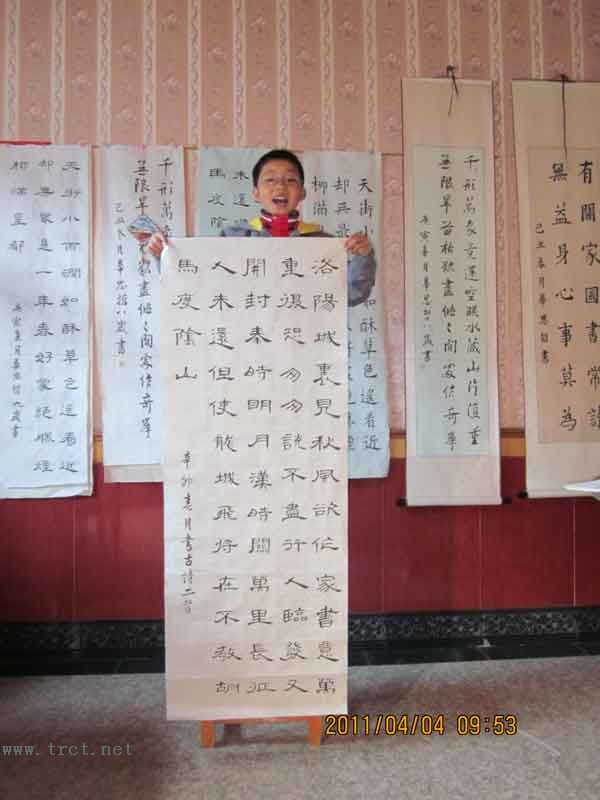 有關家國書常讀
無益身心事莫為
己丑春月華思哲書
千形萬象竟還空映水藏山片復重
無限旱苗枯欲盡悠々閑處作奇峰
庚寅春月華思哲八歲書
天街小
酥草色遙看近
却無最
柳滿
未還
馬度陰
洛陽城裏見秋風欲作家書意萬
重復恐匆匆說不盡行人臨發又
開封秦時明月漢時關萬里長征
人未還但使龍城飛將在不教胡
馬度陰山
辛卯春月書古詩二首
千形萬象竟
無限旱苗枯欲盡悠々閑處作奇峰
己丑冬月華思哲八歲書
天街小雨潤如酥草色遙看近
却無最是一年春好處絕勝煙
柳滿皇都
庚寅夏月華思哲九歲書
2011/04/04 09:53
www.trct.net